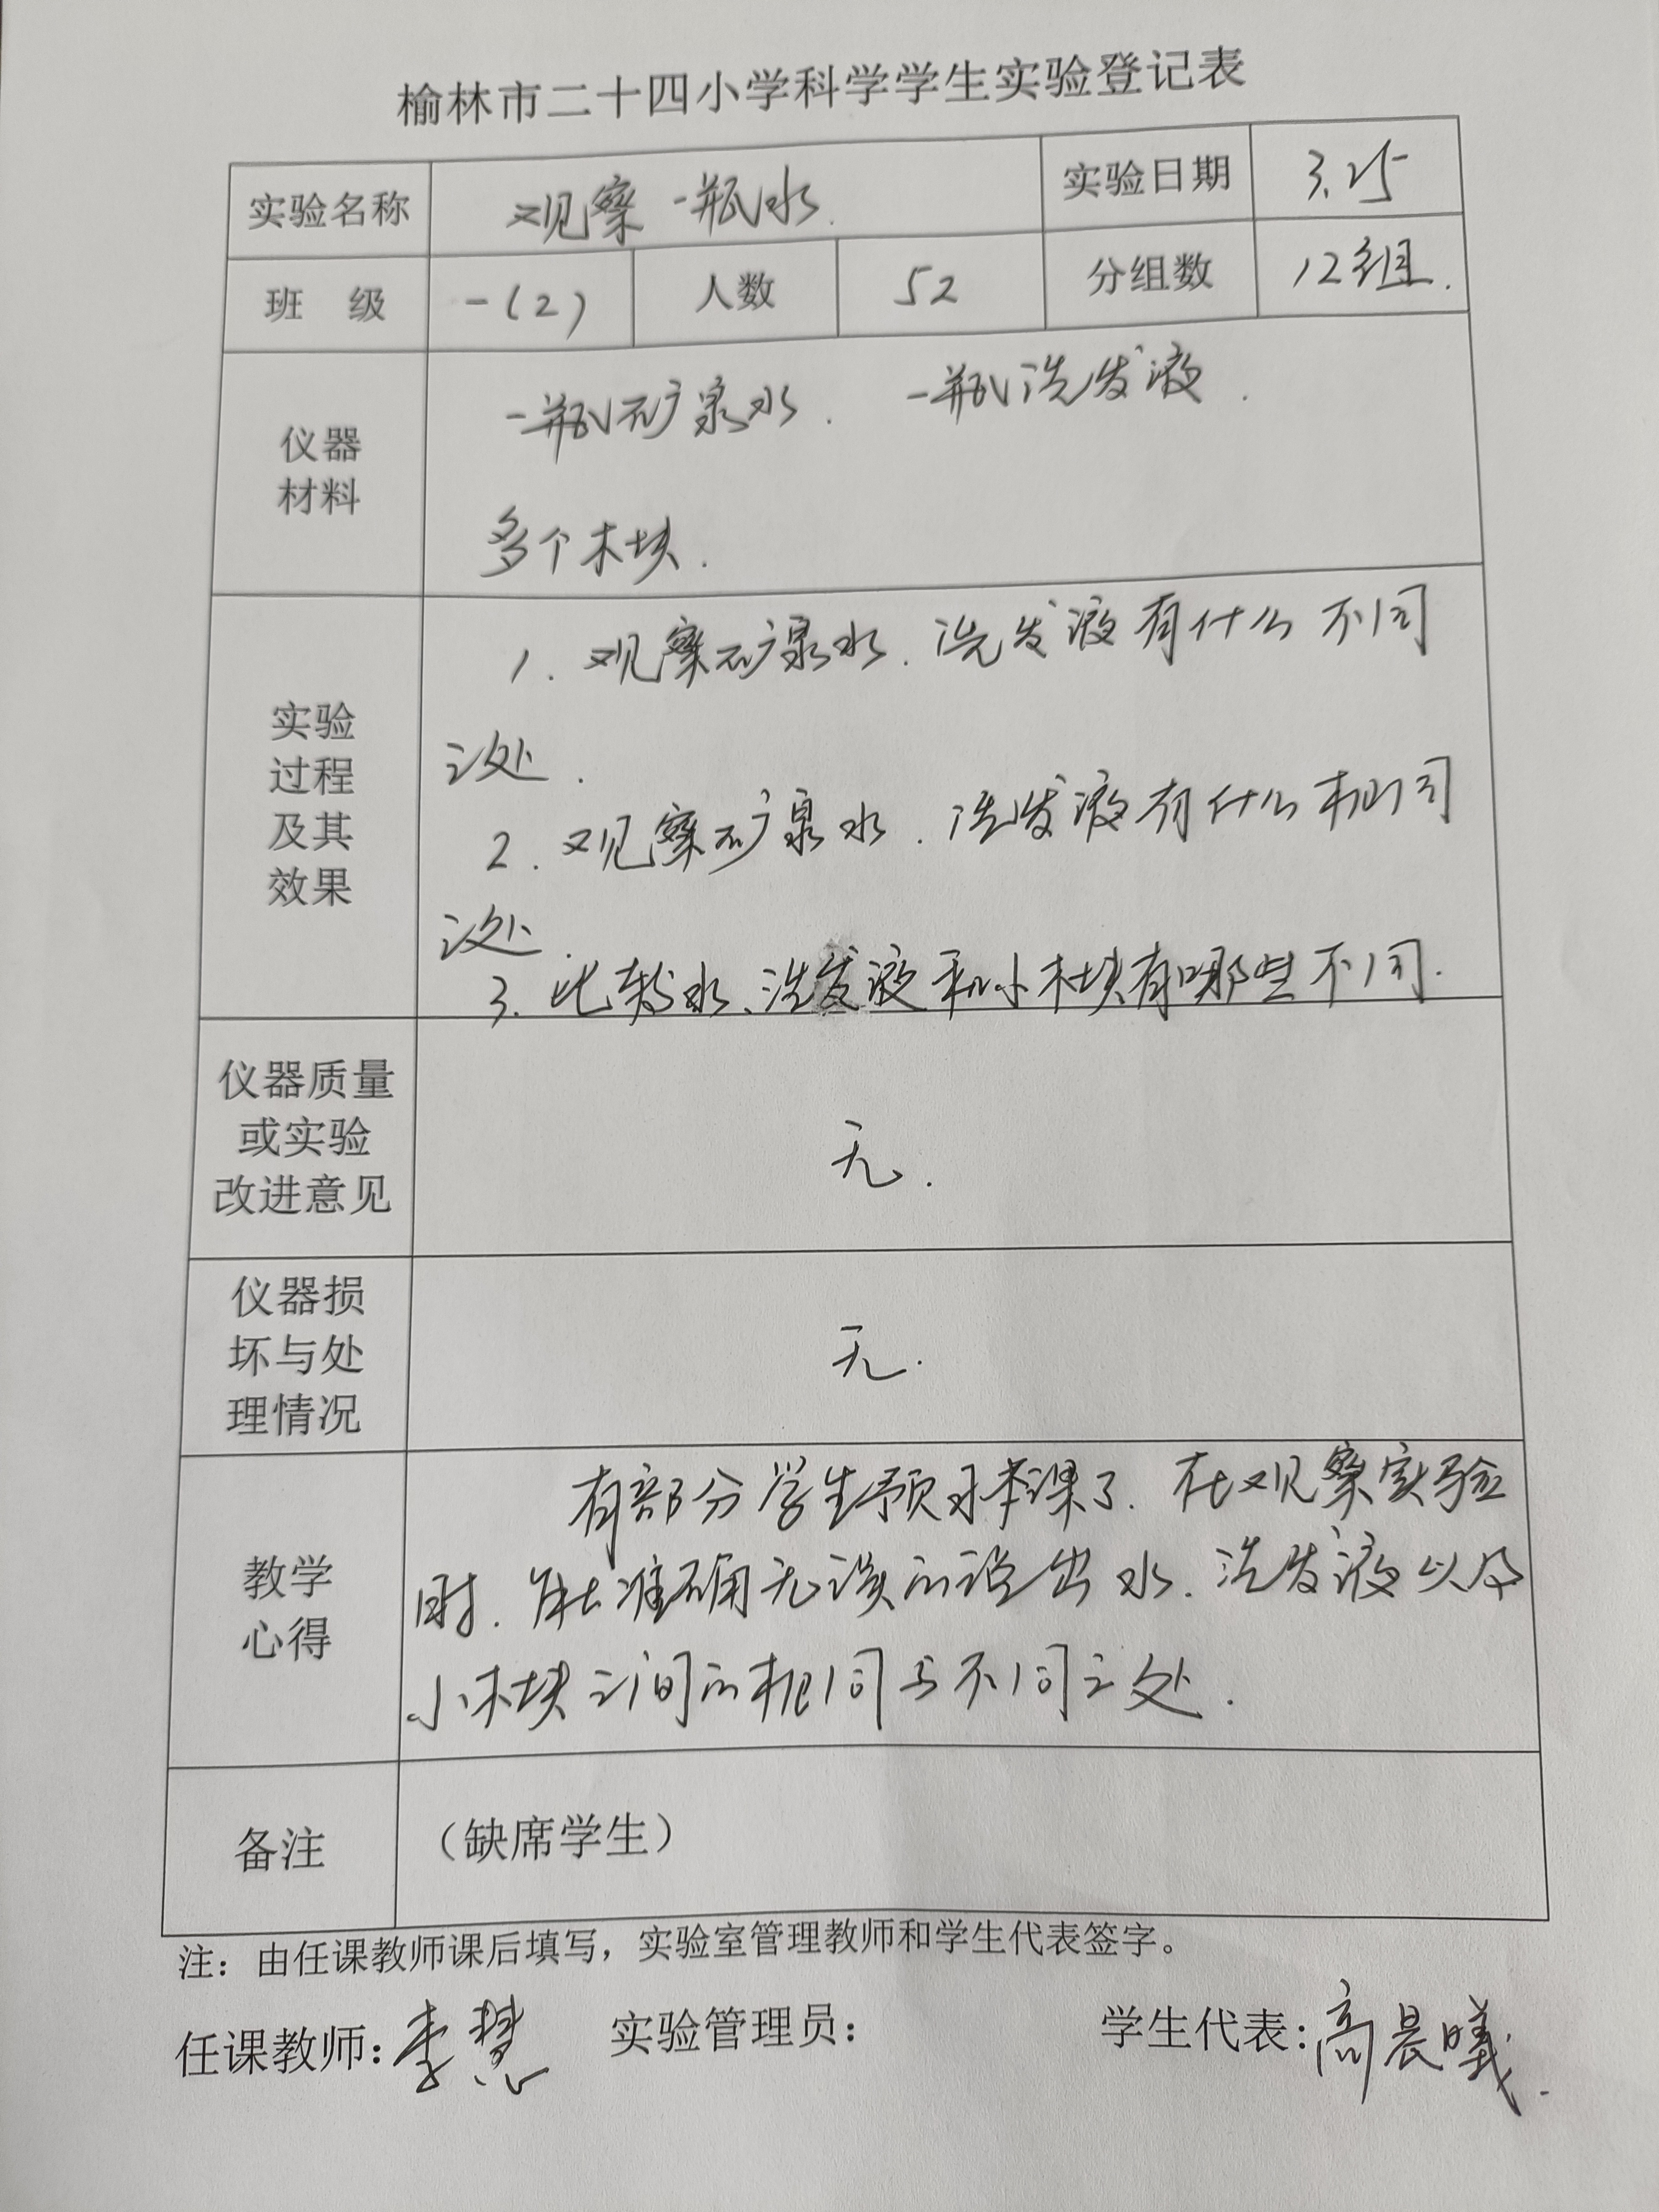 榆林市二十四小学科学学生实验登记表
实验名称 观察一瓶水. 实验日期 3.25
班 级 一(2) 人数 52 分组数 12组.
仪器
材料
一瓶矿泉水. 一瓶洗发液.
多个木块.
实验
过程
及其
效果
1. 观察矿泉水.洗发液有什么不同
之处.
2. 观察矿泉水.洗发液有什么相同
之处.
3. 比较水、洗发液和小木块有哪些不同.
仪器质量
或实验
改进意见
无.
仪器损
坏与处
理情况
无.
教学
心得
有部分学生预习本课了.在观察实验
时.能准确无误的说出水.洗发液以及
小木块之间的相同与不同之处.
备注 （缺席学生）
注：由任课教师课后填写，实验室管理教师和学生代表签字。
任课教师：李慧 实验管理员： 学生代表：高晨曦.